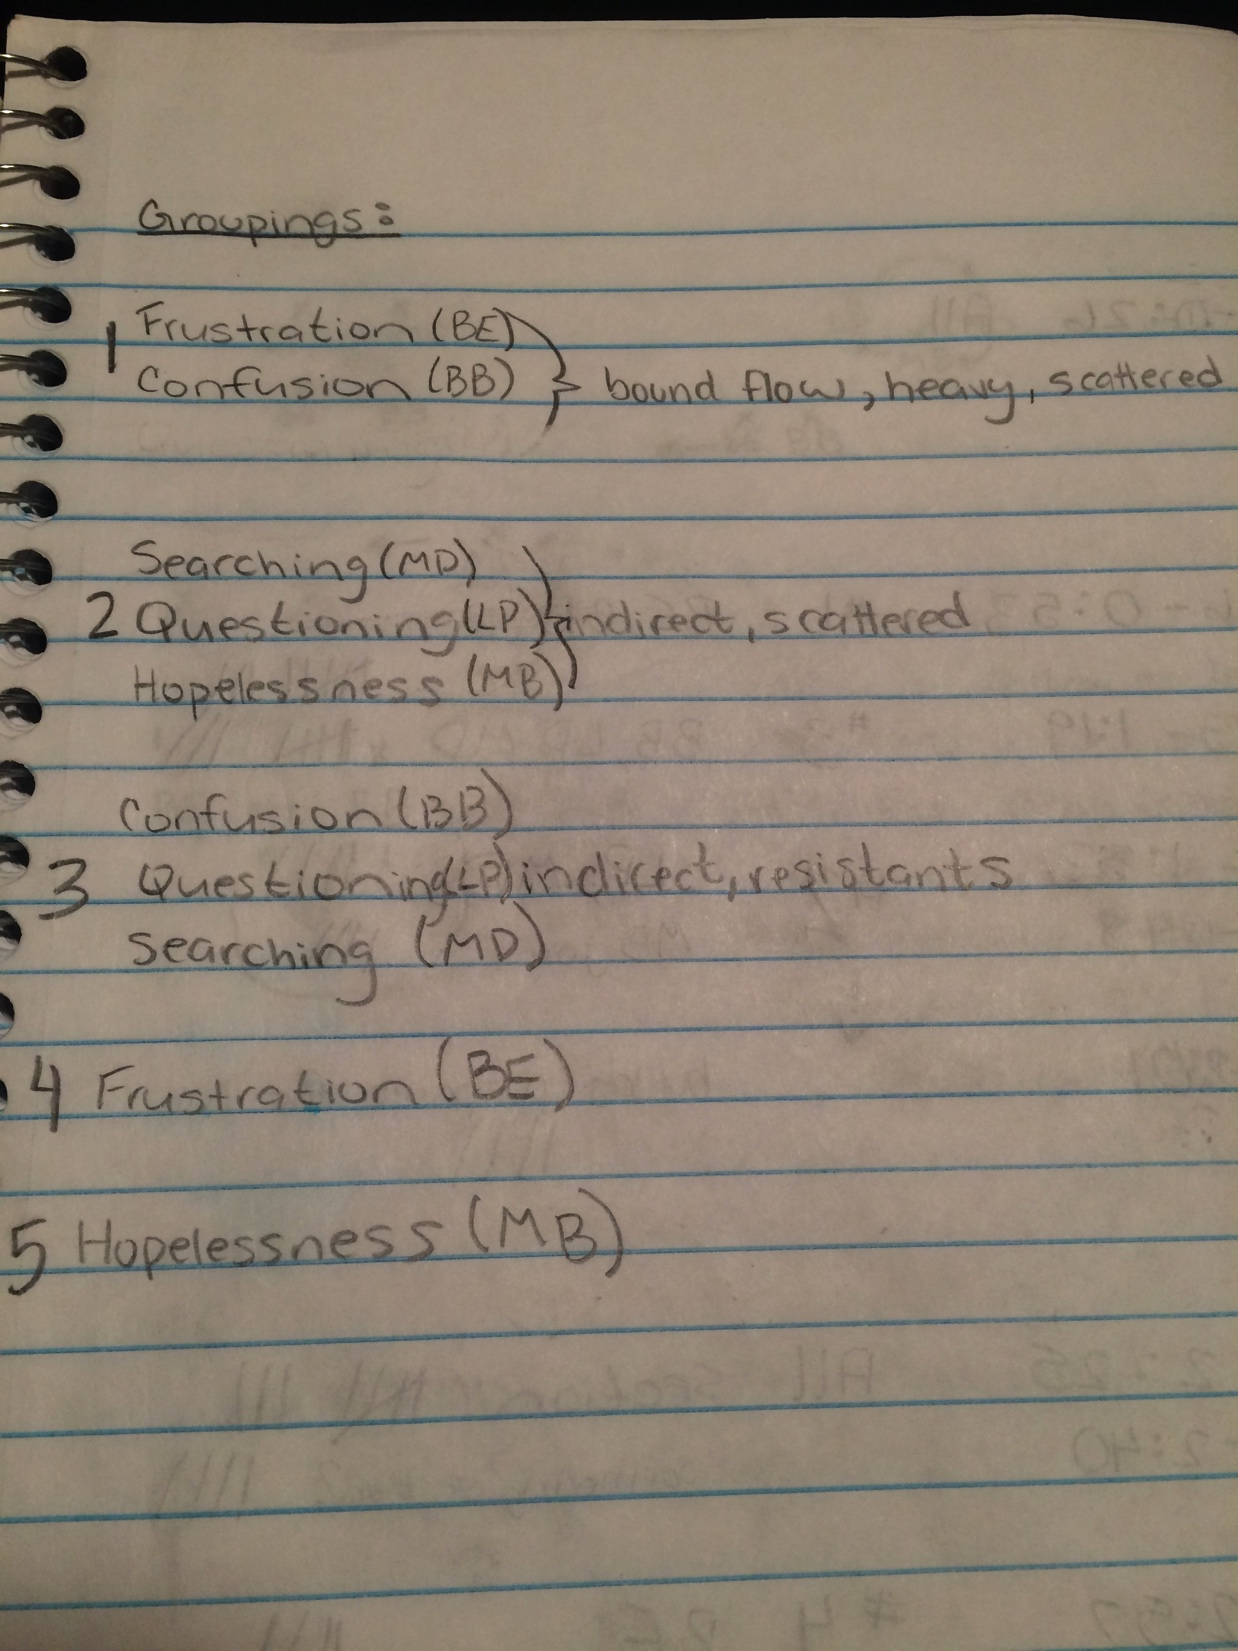 Groupings:
Frustration (BE)
1
Confusion (BB) } bound flow, heavy, scattered
Searching (MD)
2 Questioning (LP) } indirect, scattered
Hopelessness (MB)
Confusion (BB)
3 Questioning (LP) indirect, resistants
Searching (MD)
4 Frustration (BE)
5 Hopelessness (MB)